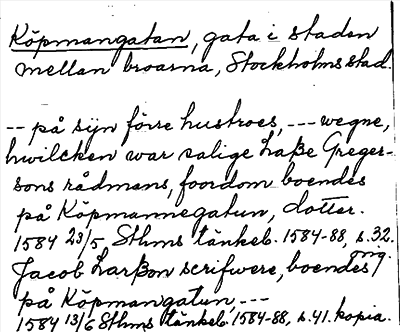 Köpmangatan, gata i staden
mellan broarna, Stockholms stad.
-- på sijn förre hustroes, --- wegne,
hwilcken war salige Laße Greger-
sons rådmans, foordom boendes
på Köpmannegatun, dotter.
1584 23/5, Sthms tänkeb. 1584-88, s. 32.
orig.
Jacob Larßon scrifwere, boendes
på Köpmangatun, ---
1584 13/6 Sthms tänkeb. 1584-88, s. 41. kopia.